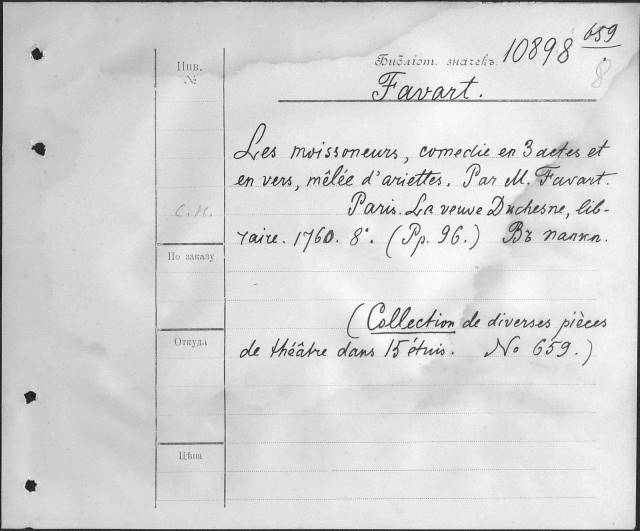 Инв.
№
Библіот. значекъ 10898 659
8
Favart.
Les moissoneurs, comedie en 3 actes et
en vers, mêlée d'ariettes. Par M. Favart.
Paris. La veuve Duchesne, lib-
С.М.
raire. 1760. 8°. (Pp. 96.) Въ папкп.
По заказу
(Collection de diverses pièces
Откуда
de théâtre dans 15 étuis. No 659.)
Цѣна